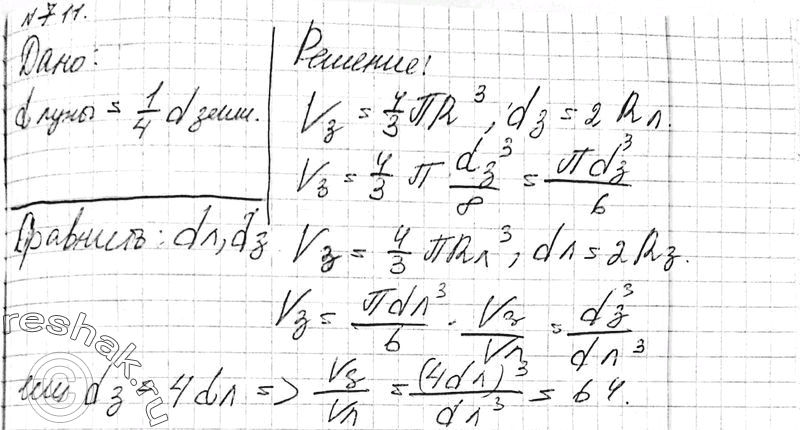 №711.
Дано:
d луны = 1/4 d земли.
Сравнить: dл, dз
Решение:
Vз = 4/3 πR³, dз = 2Rл.
Vз = 4/3 π dз³/8 = πdз³/6
Vз = 4/3 πRл³, dл = 2Rз.
Vз = πdл³/6 · Vз/Vл = dз³/dл³
dз = 4dл => Vз/Vл = (4dл)³/dл³ = 64.
reshak.ru